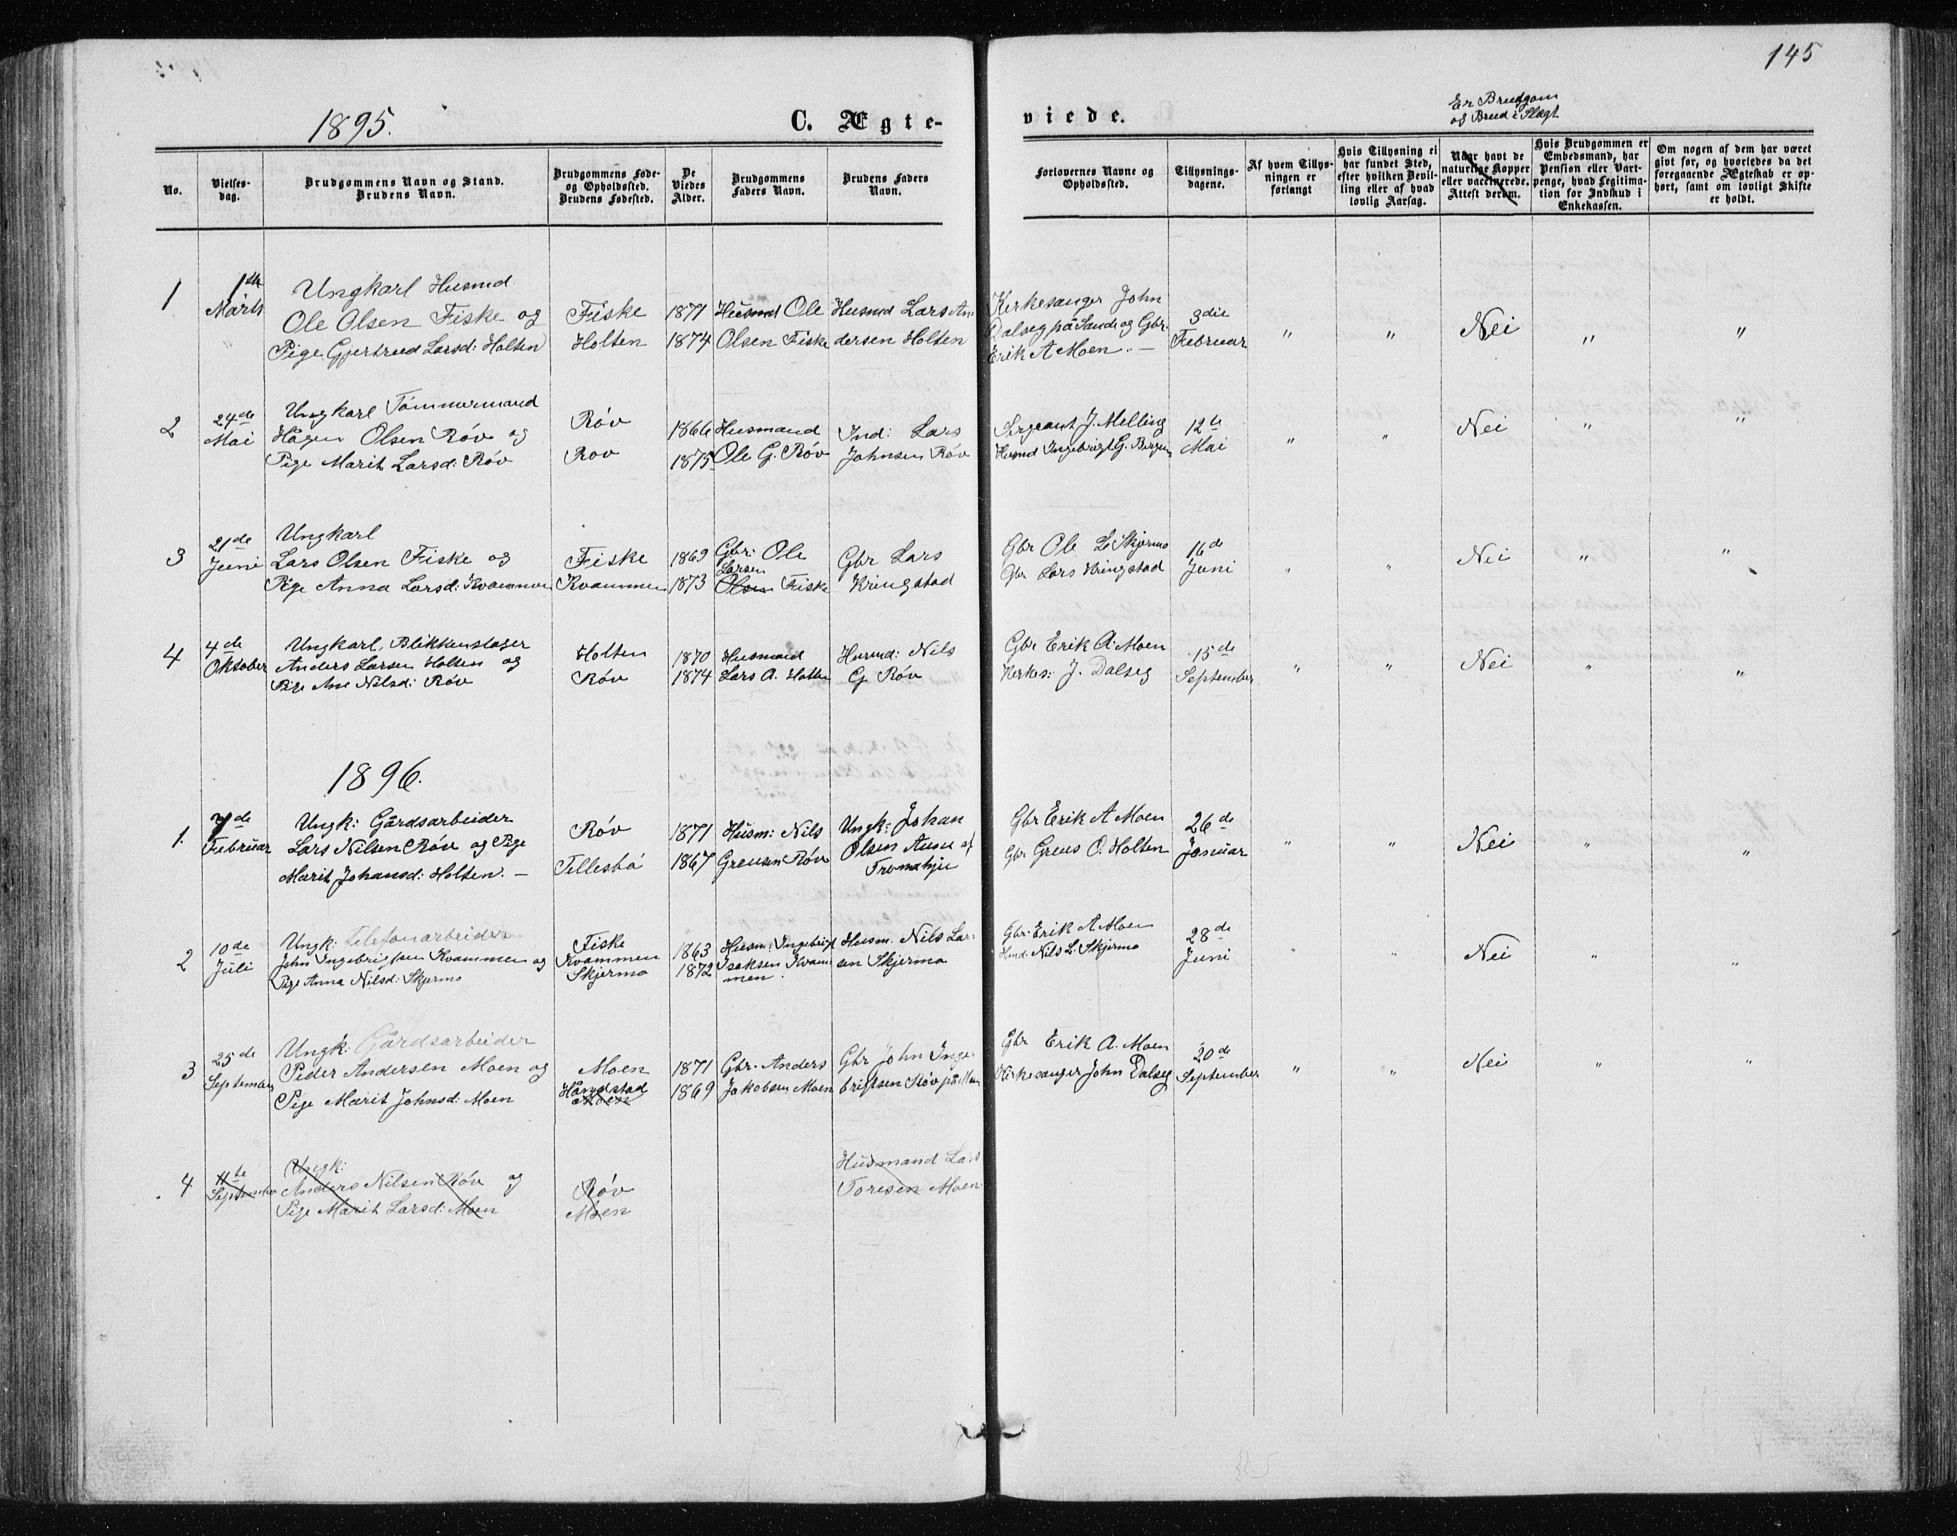 145
1895.
C. Ægte-
viede.
Er Brudgom
og Brud i Slægt
No.
Vielses-
dag.
Brudgommens Navn og Stand.
Brudens Navn.
Brudgommens Føde-
og Opholdssted.
Brudens Fødested.
De
Viedes
Alder.
Brudgommens
Faders Navn.
Brudens Faders
Navn.
Forlovernes Navne og
Opholdssted.
Tillysnings-
dagene.
Af hvem Tillys-
ningen er
forlangt
Hvis Tillysning ei
har fundet Sted,
efter hvilken Bevil-
ling eller af hvad
lovlig Aarsag.
Naar havt de
naturlige Kopper
eller vaccinerede.
Attest derom.
Hvis Brudgommen er
Embedsmand, har
Pension eller Vart-
penge, hvad Legitima-
tion for Indskud i
Enkekassen.
Om nogen af dem har været
givt før, og hvorledes da det
foregaaende Ægteskab er op-
hørt, samt om lovligt Skifte
er holdt.
1
1ste
Marts
Ungkarl Husmd.
Ole Olsen Fiske og
Pige Gjertrud Larsd: Holten
Fiske
Holten
1871
1874
Husmd Ole
Olsen Fiske
Husmd Lars An-
dersen Holten
Kirkesanger John
Dalseg på Sande og Gbr.
Erik A Moen. —
3die
Februar
" " Nei " "
2
24de
Mai
Ungkarl Tømmermand
Hågen Olsen Røv og
Pige Marit Larsd: Røv
Røv
Rov
1866
1875
Husmand
Ole G. Røv
Ind: Lars
Johnsen Røv
Sergeant J. Melling
Husmd Ingebrigt G. Bergem
12te
Mai
" " Nei " "
3
21de
Juni
Ungkarl
Lars Olsen Fiske og
Pige Anna Larsd: Kvammen
Fiske
Kvammen
1869
1873
Gbr: Ole
Larsen
Olsen Fiske
Gbr Lars
Kringstad
Gbr Ole L Skjermo
Gbr Lars Kringstad
16de
Juni
" " Nei " "
4
4de
Oktober
Ungkarl, Blikkenslager
Anders Larsen Holten og
Pige Ane Nilsd: Røv
Holten
Røv
1870
1874
Husmand
Lars A. Holten
Husmd: Nils
G Røv
Gbr Erik A. Moen
Kirkes: J. Dalseg
15de
September
" " Nei " "
1896.
1.
7de
Februar
Ungk: Gårdsarbeider
Lars Nilsen Røv og Pige
Marit Johansd: Holten. —
Røv
Tillesbø
1871
1867
Husm: Nils
Grensen Røv
Ungk: Johan
Olsen Aune af
Gbr Erik A Moen
Gbr Greus O. Holten
26de
Januar
" " Nei " "
2
10de
Juli
Ungk: Telefonarbeider
John Ingebrigtsen Kvammen og
Pige Anna Nilsd: Skjermo
Fiske
Kvammen
Skjermo
1863
1872
Husm: Ingebrigt
Isaksen Kvam-
men.
Husm. Nils Lar-
sen Skjermo
Gbr: Erik A Moen
Hmd: Nils L. Skjermo
28de
Juni
" " Nei " "
3
25de
September
Ungk: Gårdsarbeider
Peder Andersen Moen og
Pige Marit Johnsd: Moen
Moen
Håndstad
Moen
1871
1869
Gbr. Anders
Jakobsen Moen
Gbr John Inge-
brigtsen Røv på Moen
Gbr Erik A. Moen
Kirkesanger John Dalseg
20de
September
" " Nei " "
4
11te
September
Ungk:
Anders Nilsen Røv og
Pige Marit Larsd: Moen
Røv
Moen
Husmand Lars
Toresen Moen